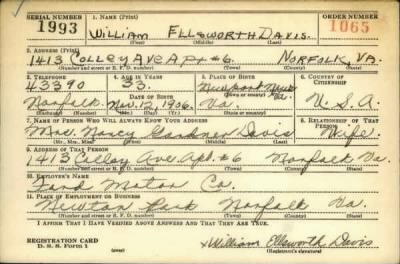 SERIAL NUMBER 1. NAME (Print) ORDER NUMBER
1993 WILLIAM ELLSWORTH DAVIS. 1065
(First) (Middle) (Last)
2. ADDRESS (Print)
1413 COLLEY AVE APT #6. NORFOLK, VA.
(Number and street or R. F. D. number) (Town) (County) (State)
3. TELEPHONE 4. AGE IN YEARS 5. PLACE OF BIRTH 6. COUNTRY OF CITIZENSHIP
43390 33. Newport News
DATE OF BIRTH Va.
Norfolk Nov. 12, 1906. U.S.A.
(Exchange) (Number) (Mo.) (Day) (Yr.) (State or country)
7. NAME OF PERSON WHO WILL ALWAYS KNOW YOUR ADDRESS 8. RELATIONSHIP OF THAT PERSON
Mrs. Nancy Gardner Davis Wife.
(Mr., Mrs., Miss) (First) (Middle) (Last)
9. ADDRESS OF THAT PERSON
1413 Colley Ave. Apt. #6 Norfolk Va.
(Number and street or R. F. D. number) (Town) (County) (State)
10. EMPLOYER'S NAME
Ford Motor Co.
11. PLACE OF EMPLOYMENT OR BUSINESS
Newton Park Norfolk Va.
(Number and street or R. F. D. number) (Town) (County) (State)
I AFFIRM THAT I HAVE VERIFIED ABOVE ANSWERS AND THAT THEY ARE TRUE.
REGISTRATION CARD
D. S. S. Form 1 x William Ellsworth Davis
(Registrant's signature)